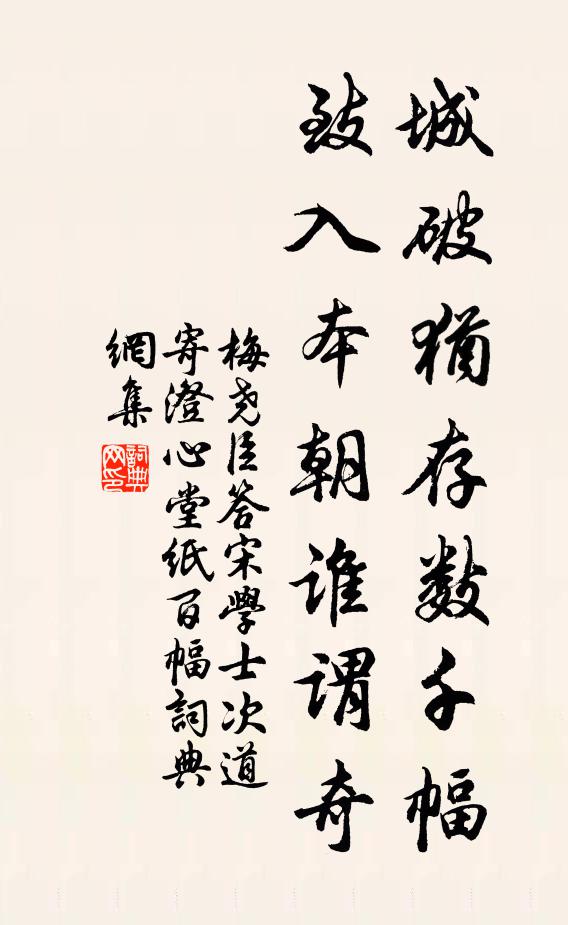 城破猶存數千幅
致入本朝誰謂奇
梅堯臣答宋學士次道
寄澄心堂紙百幅詞典
網集
詞典网印